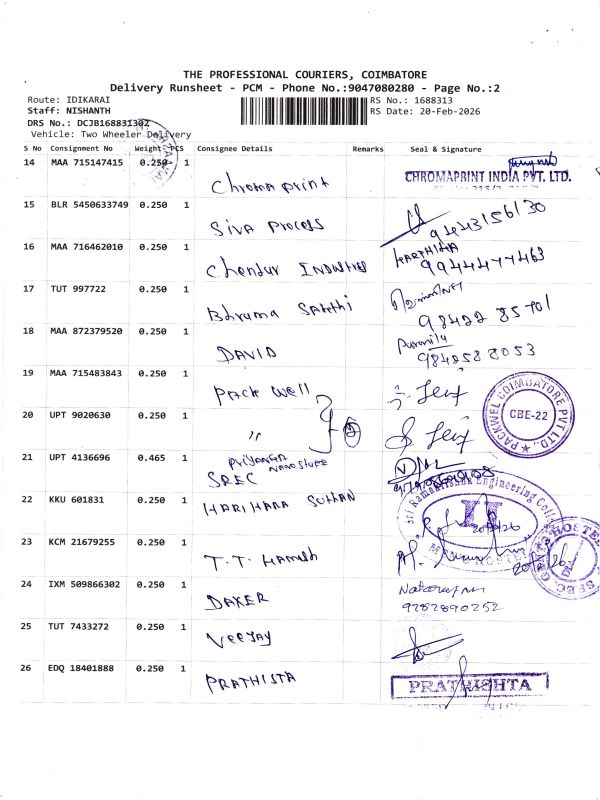 THE PROFESSIONAL COURIERS, COIMBATORE
Delivery Runsheet - PCM - Phone No.:9047080280 - Page No.:2
Route: IDIKARAI RS No.: 1688313
Staff: NISHANTH RS Date: 20-Feb-2026
DRS No.: DCJB1688313O2
Vehicle: Two Wheeler Delivery
S No Consignment No Weight PCS Consignee Details Remarks Seal & Signature
14 MAA 715147415 0.250 1 Chroma print CHROMAPRINT INDIA PVT. LTD.
15 BLR 5450633749 0.250 1 Siva Process
16 MAA 716462010 0.250 1 Chendur 9944477463
17 TUT 997722 0.250 1 Bhrama Sakthi 98422 85701
18 MAA 872379520 0.250 1 DAVID
19 MAA 715483843 0.250 1 Pack well PACKWEL COIMBATORE PVT LTD., CBE-22
20 UPT 9020630 0.250 1 "
21 UPT 4136696 0.465 1 Priyanga SREC
22 KKU 601831 0.250 1 HARIHARA Sri Ramakrishna Engineering College
23 KCM 21679255 0.250 1 T.T. HOSTEL
24 IXM 509866302 0.250 1 DAKER 9282890252
25 TUT 7433272 0.250 1 VEEJAY
26 EDQ 18401888 0.250 1 PRATHISTA PRATHISHTA